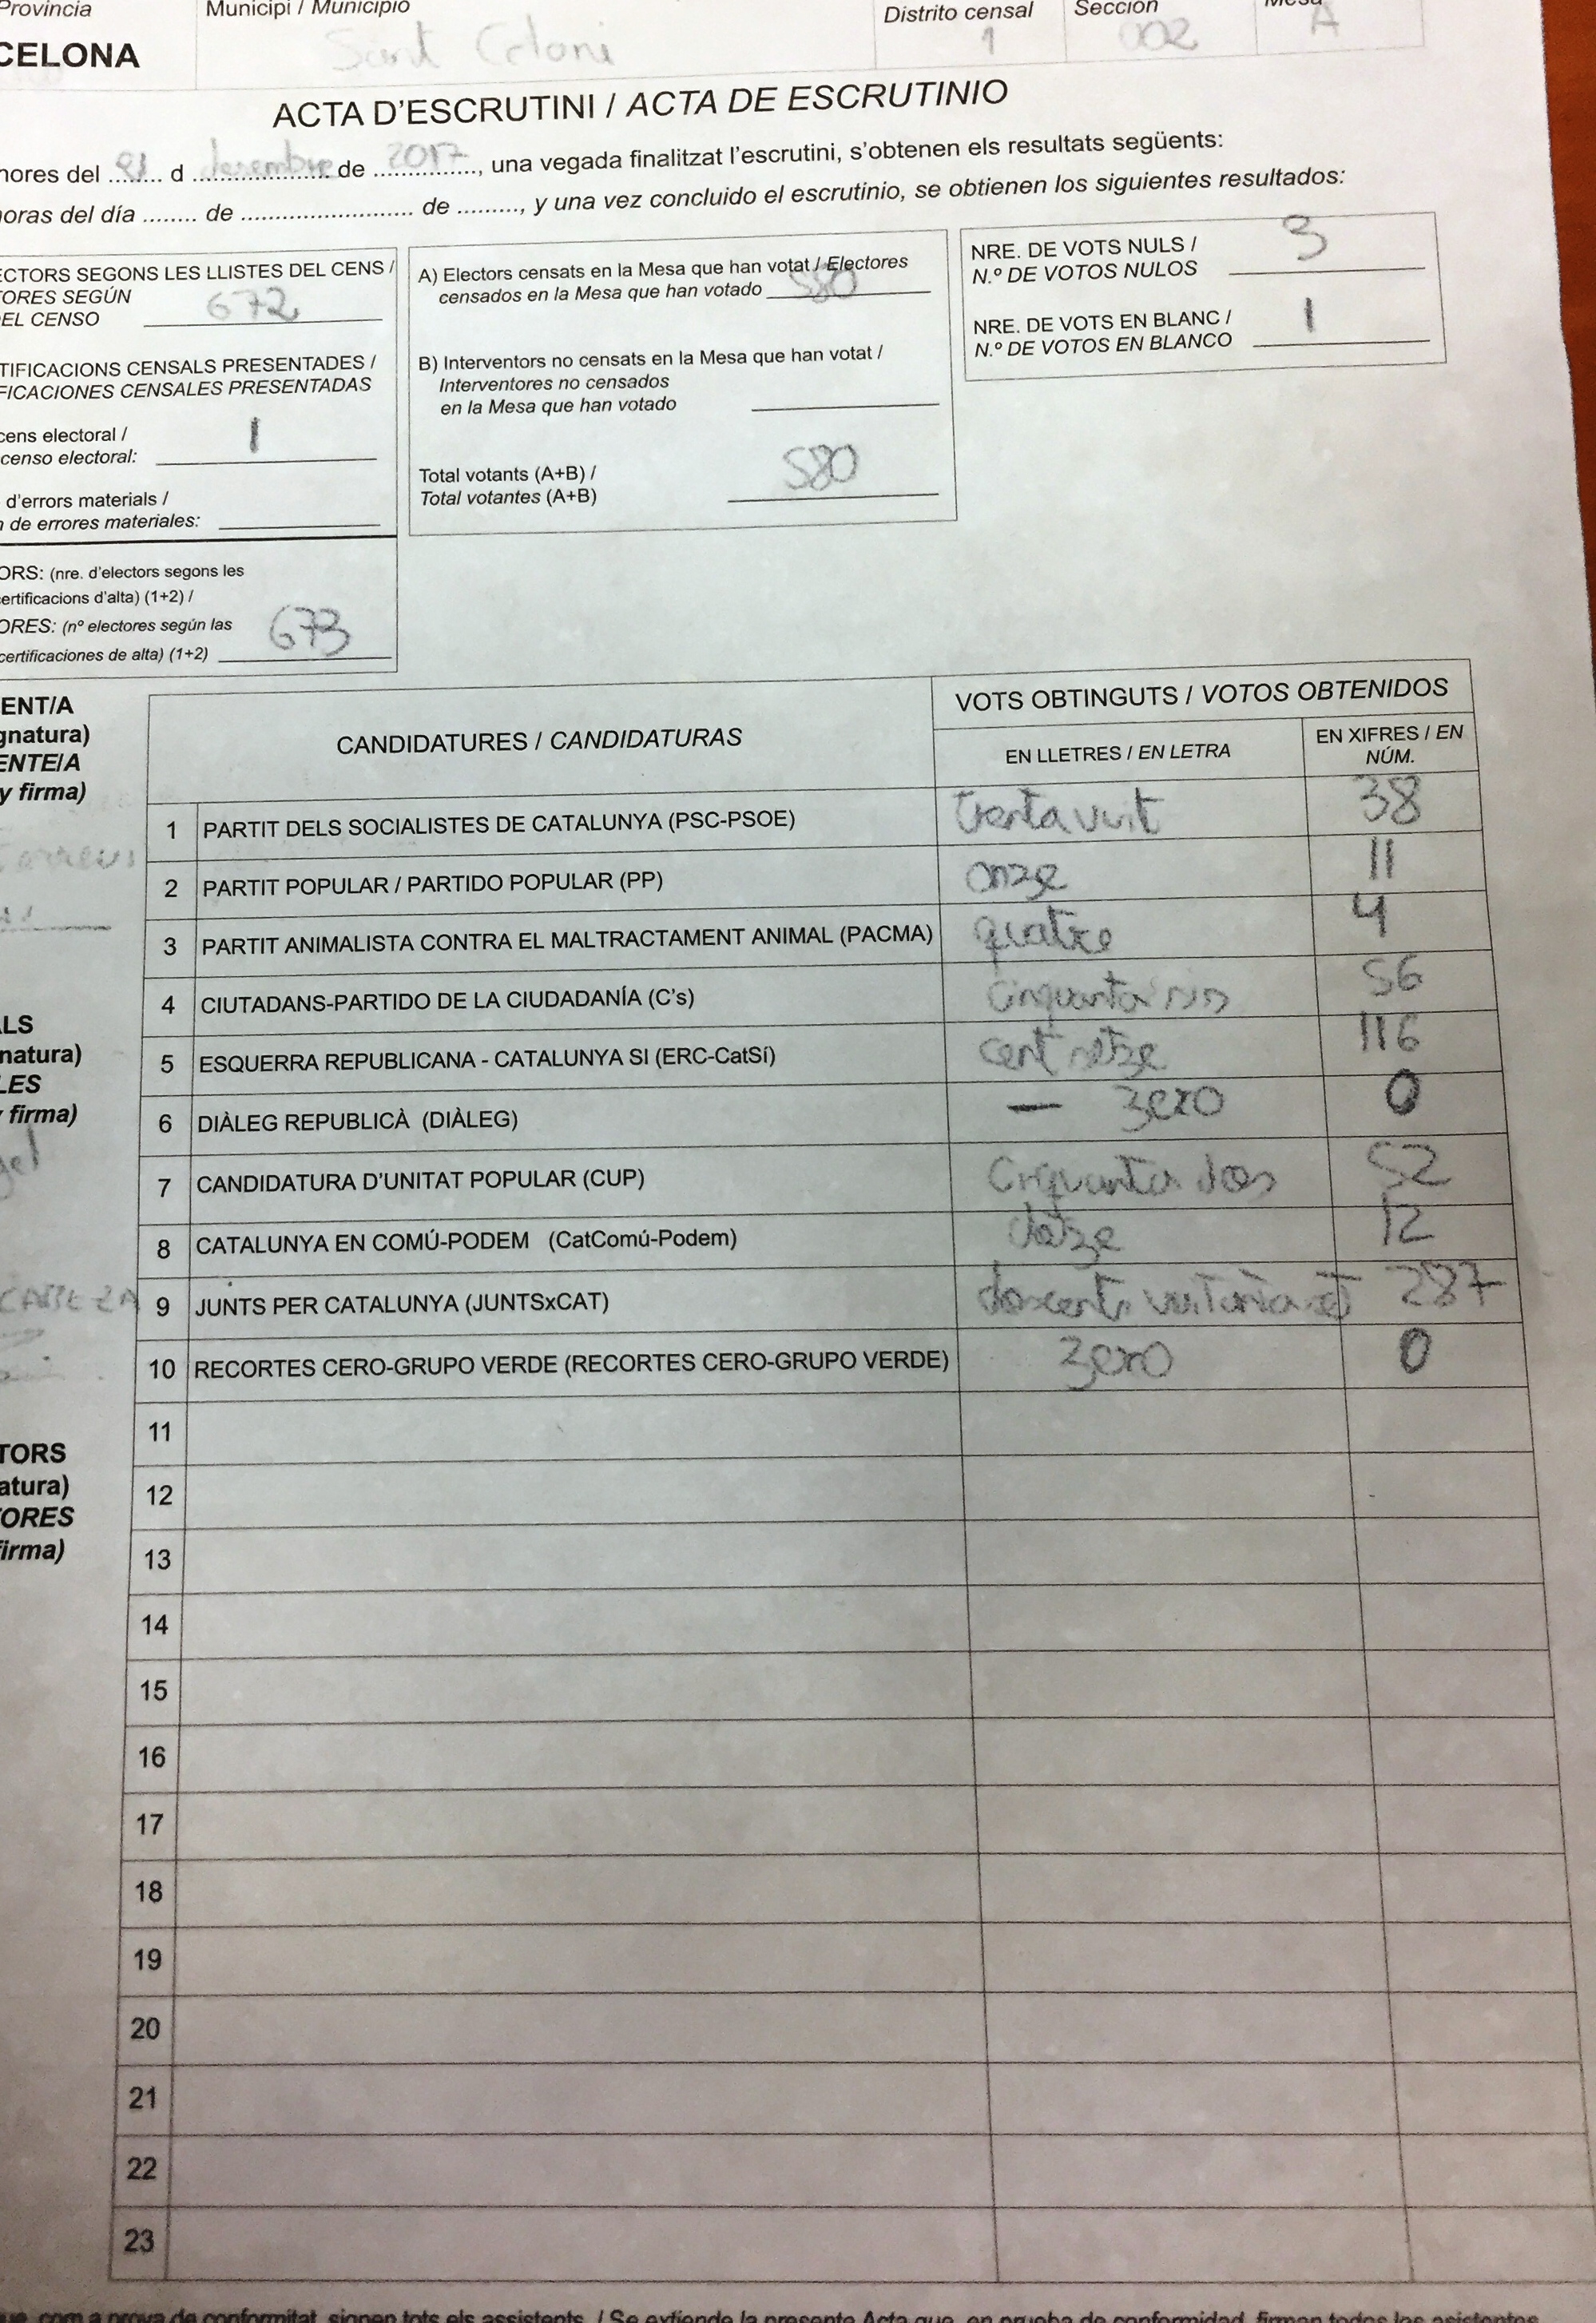 Provincia Municipi / Municipio Distrito censal Sección Mesa
CELONA Sant Celoni 1 002 A
ACTA D'ESCRUTINI / ACTA DE ESCRUTINIO
hores del 21 d desembre de 2017, una vegada finalitzat l'escrutini, s'obtenen els resultats següents:
horas del día ........ de .......................... de ........., y una vez concluido el escrutinio, se obtienen los siguientes resultados:
ECTORS SEGONS LES LLISTES DEL CENS /
TORES SEGÚN
EL CENSO 672
TIFICACIONS CENSALS PRESENTADES /
FICACIONES CENSALES PRESENTADAS
cens electoral /
censo electoral: 1
d'errors materials /
n de errores materiales:
ORS: (nre. d'electors segons les
certificacions d'alta) (1+2) /
ORES: (nº electores según las
certificaciones de alta) (1+2) 673
A) Electors censats en la Mesa que han votat / Electores
censados en la Mesa que han votado 580
B) Interventors no censats en la Mesa que han votat /
Interventores no censados
en la Mesa que han votado
Total votants (A+B) /
Total votantes (A+B) 580
NRE. DE VOTS NULS /
N.º DE VOTOS NULOS 3
NRE. DE VOTS EN BLANC /
N.º DE VOTOS EN BLANCO 1
ENT/A
gnatura)
ENTE/A
y firma)
ALS
natura)
LES
firma)
gel
TORS
atura)
TORES
firma)
CANDIDATURES / CANDIDATURAS
VOTS OBTINGUTS / VOTOS OBTENIDOS
EN LLETRES / EN LETRA
EN XIFRES / EN
NÚM.
1 PARTIT DELS SOCIALISTES DE CATALUNYA (PSC-PSOE) trenta vuit 38
2 PARTIT POPULAR / PARTIDO POPULAR (PP) onze 11
3 PARTIT ANIMALISTA CONTRA EL MALTRACTAMENT ANIMAL (PACMA) quatre 4
4 CIUTADANS-PARTIDO DE LA CIUDADANÍA (C's) cinquanta sis 56
5 ESQUERRA REPUBLICANA - CATALUNYA SI (ERC-CatSí) cent setze 116
6 DIÀLEG REPUBLICÀ (DIÀLEG) — zero 0
7 CANDIDATURA D'UNITAT POPULAR (CUP) Cinquanta dos 52
8 CATALUNYA EN COMÚ-PODEM (CatComú-Podem) dotze 12
9 JUNTS PER CATALUNYA (JUNTSxCAT) doscents vuitanta set 287
10 RECORTES CERO-GRUPO VERDE (RECORTES CERO-GRUPO VERDE) zero 0
11
12
13
14
15
16
17
18
19
20
21
22
23
que, com a prova de conformitat, signen tots els assistents. / Se extiende la presente Acta que, en prueba de conformidad, firman todos los asistentes